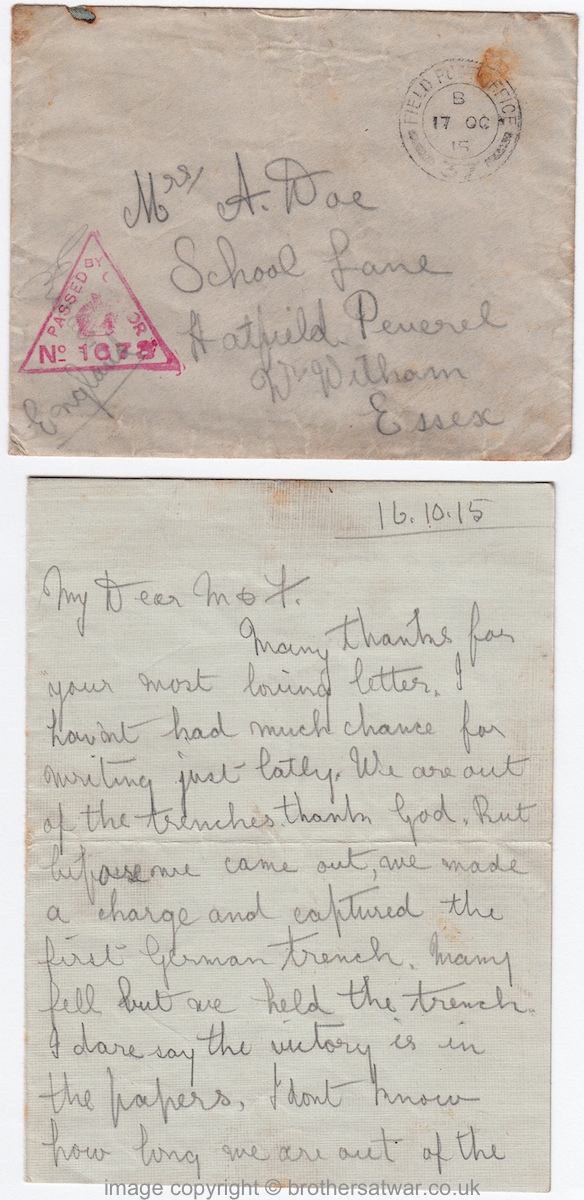 FIELD POST OFFICE
B
17 OC
15
Mrs A. Doe
School Lane
Hatfield Peverel
Nr Witham
Essex
England
PASSED BY
No 1673
16.10.15
My Dear M & F.
Many thanks for
your most loving letter. I
hav'nt had much chance for
writing just latly. We are out
of the trenches thank God. But
before we came out, we made
a charge and captured the
first German trench. Many
fell but we held the trench.
I dare say the victory is in
the papers. I dont know
how long we are out of the
Image copyright © brothersatwar.co.uk